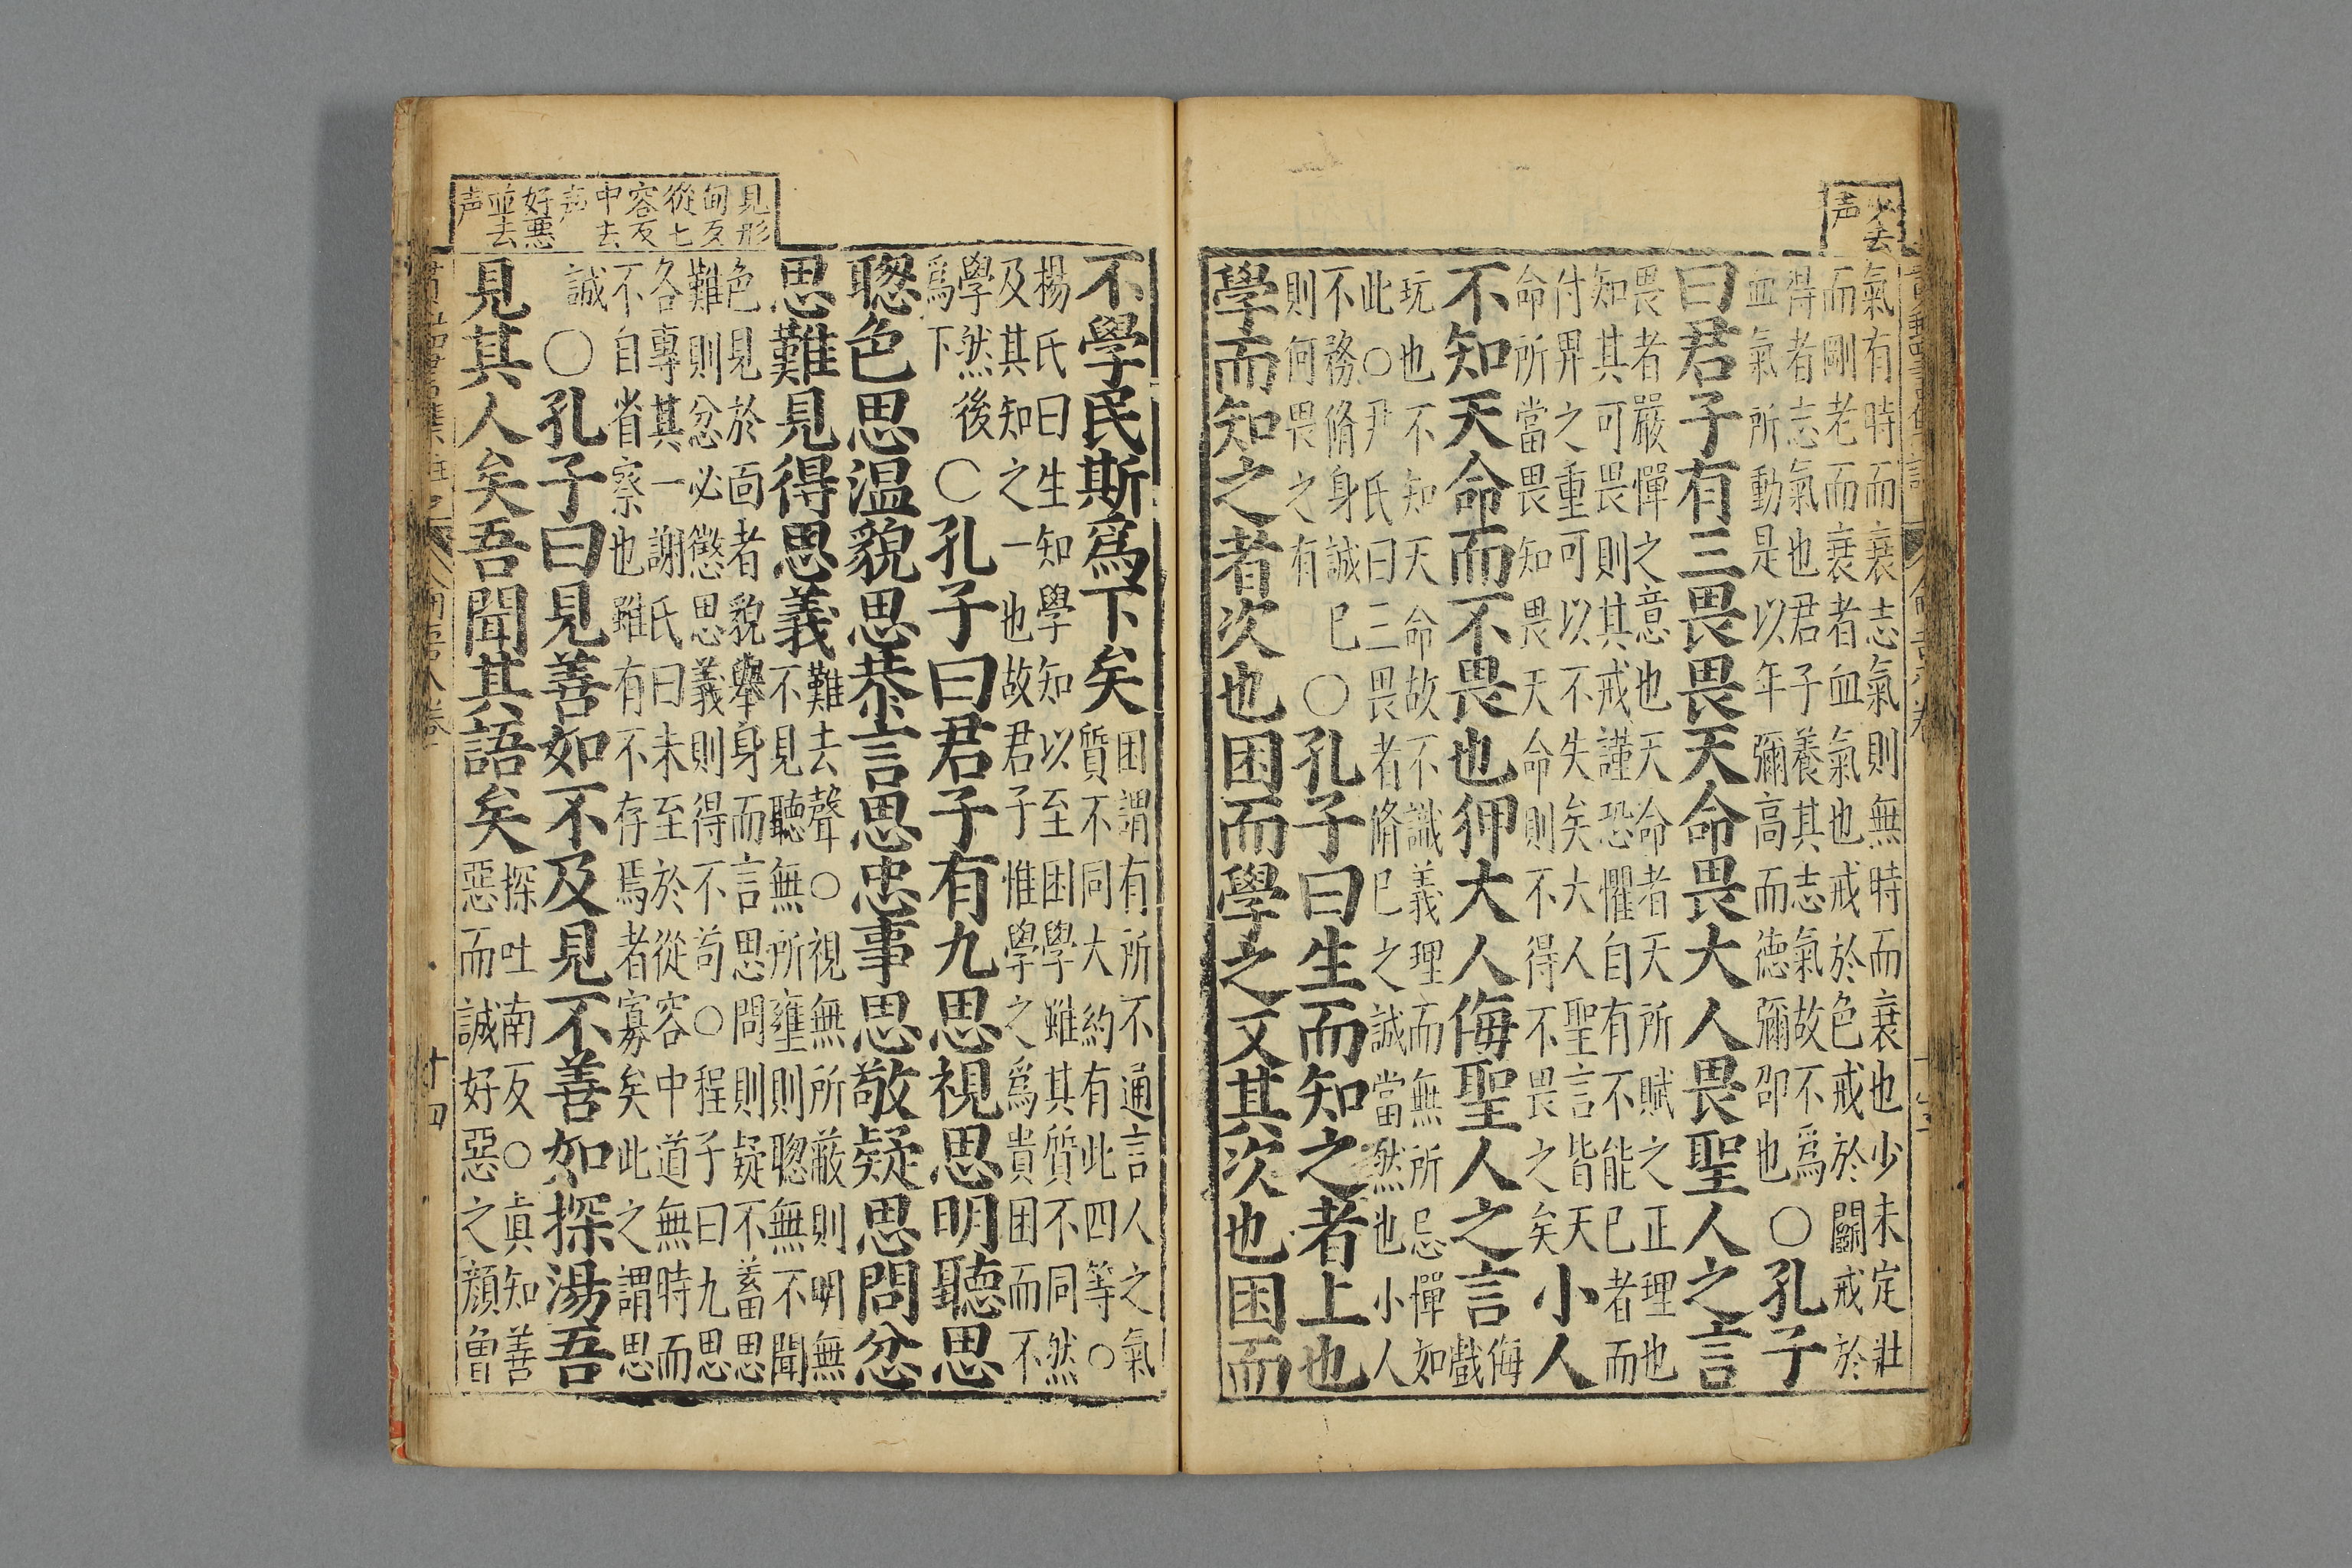 少去
声
氣有時而衰志氣則無時而衰也少未定壯
而剛老而衰者血氣也戒於色戒於闘戒於
得者志氣也君子養其志氣故不爲
血氣所動是以年彌高而德彌卲也
○孔子
曰君子有三畏畏天命畏大人畏聖人之言
畏者嚴憚之意也天命者天所賦之正理也
知其可畏則其戒謹恐懼自有不能已者而
付畀之重可以不失矣大人聖言皆天
命所當畏知畏天命則不得不畏之矣
小人
不知天命而不畏也狎大人侮聖人之言
侮
戲
玩也不知天命故不識義理而無所忌憚如
此○尹氏曰三畏者脩已之誠當然也小人
不務脩身誠已
則何畏之有
○孔子曰生而知之者上也
學而知之者次也困而學之又其次也困而
見形
甸反
從七
容反
中去
声
好惡
並去
声
不學民斯爲下矣
困謂有所不通言人之氣
質不同大約有此四等○
楊氏曰生知學知以至困學雖其質不同然
及其知之一也故君子惟學之爲貴困而不
學然後
爲下
○孔子曰君子有九思視思明聽思
聰色思温貌思恭言思忠事思敬疑思問忿
思難見得思義
難去聲○視無所蔽則明無
不見聽無所壅則聰無不聞
色見於面者貌舉身而言思問則疑不蓄思
難則忿必懲思義則得不苟○程子曰九思
各專其一謝氏曰未至於從容中道無時而
不自省察也雖有不存焉者寡矣此之謂思
誠
○孔子曰見善如不及見不善如探湯吾
見其人矣吾聞其語矣
探吐南反○眞知善
惡而誠好惡之顔曾
十四